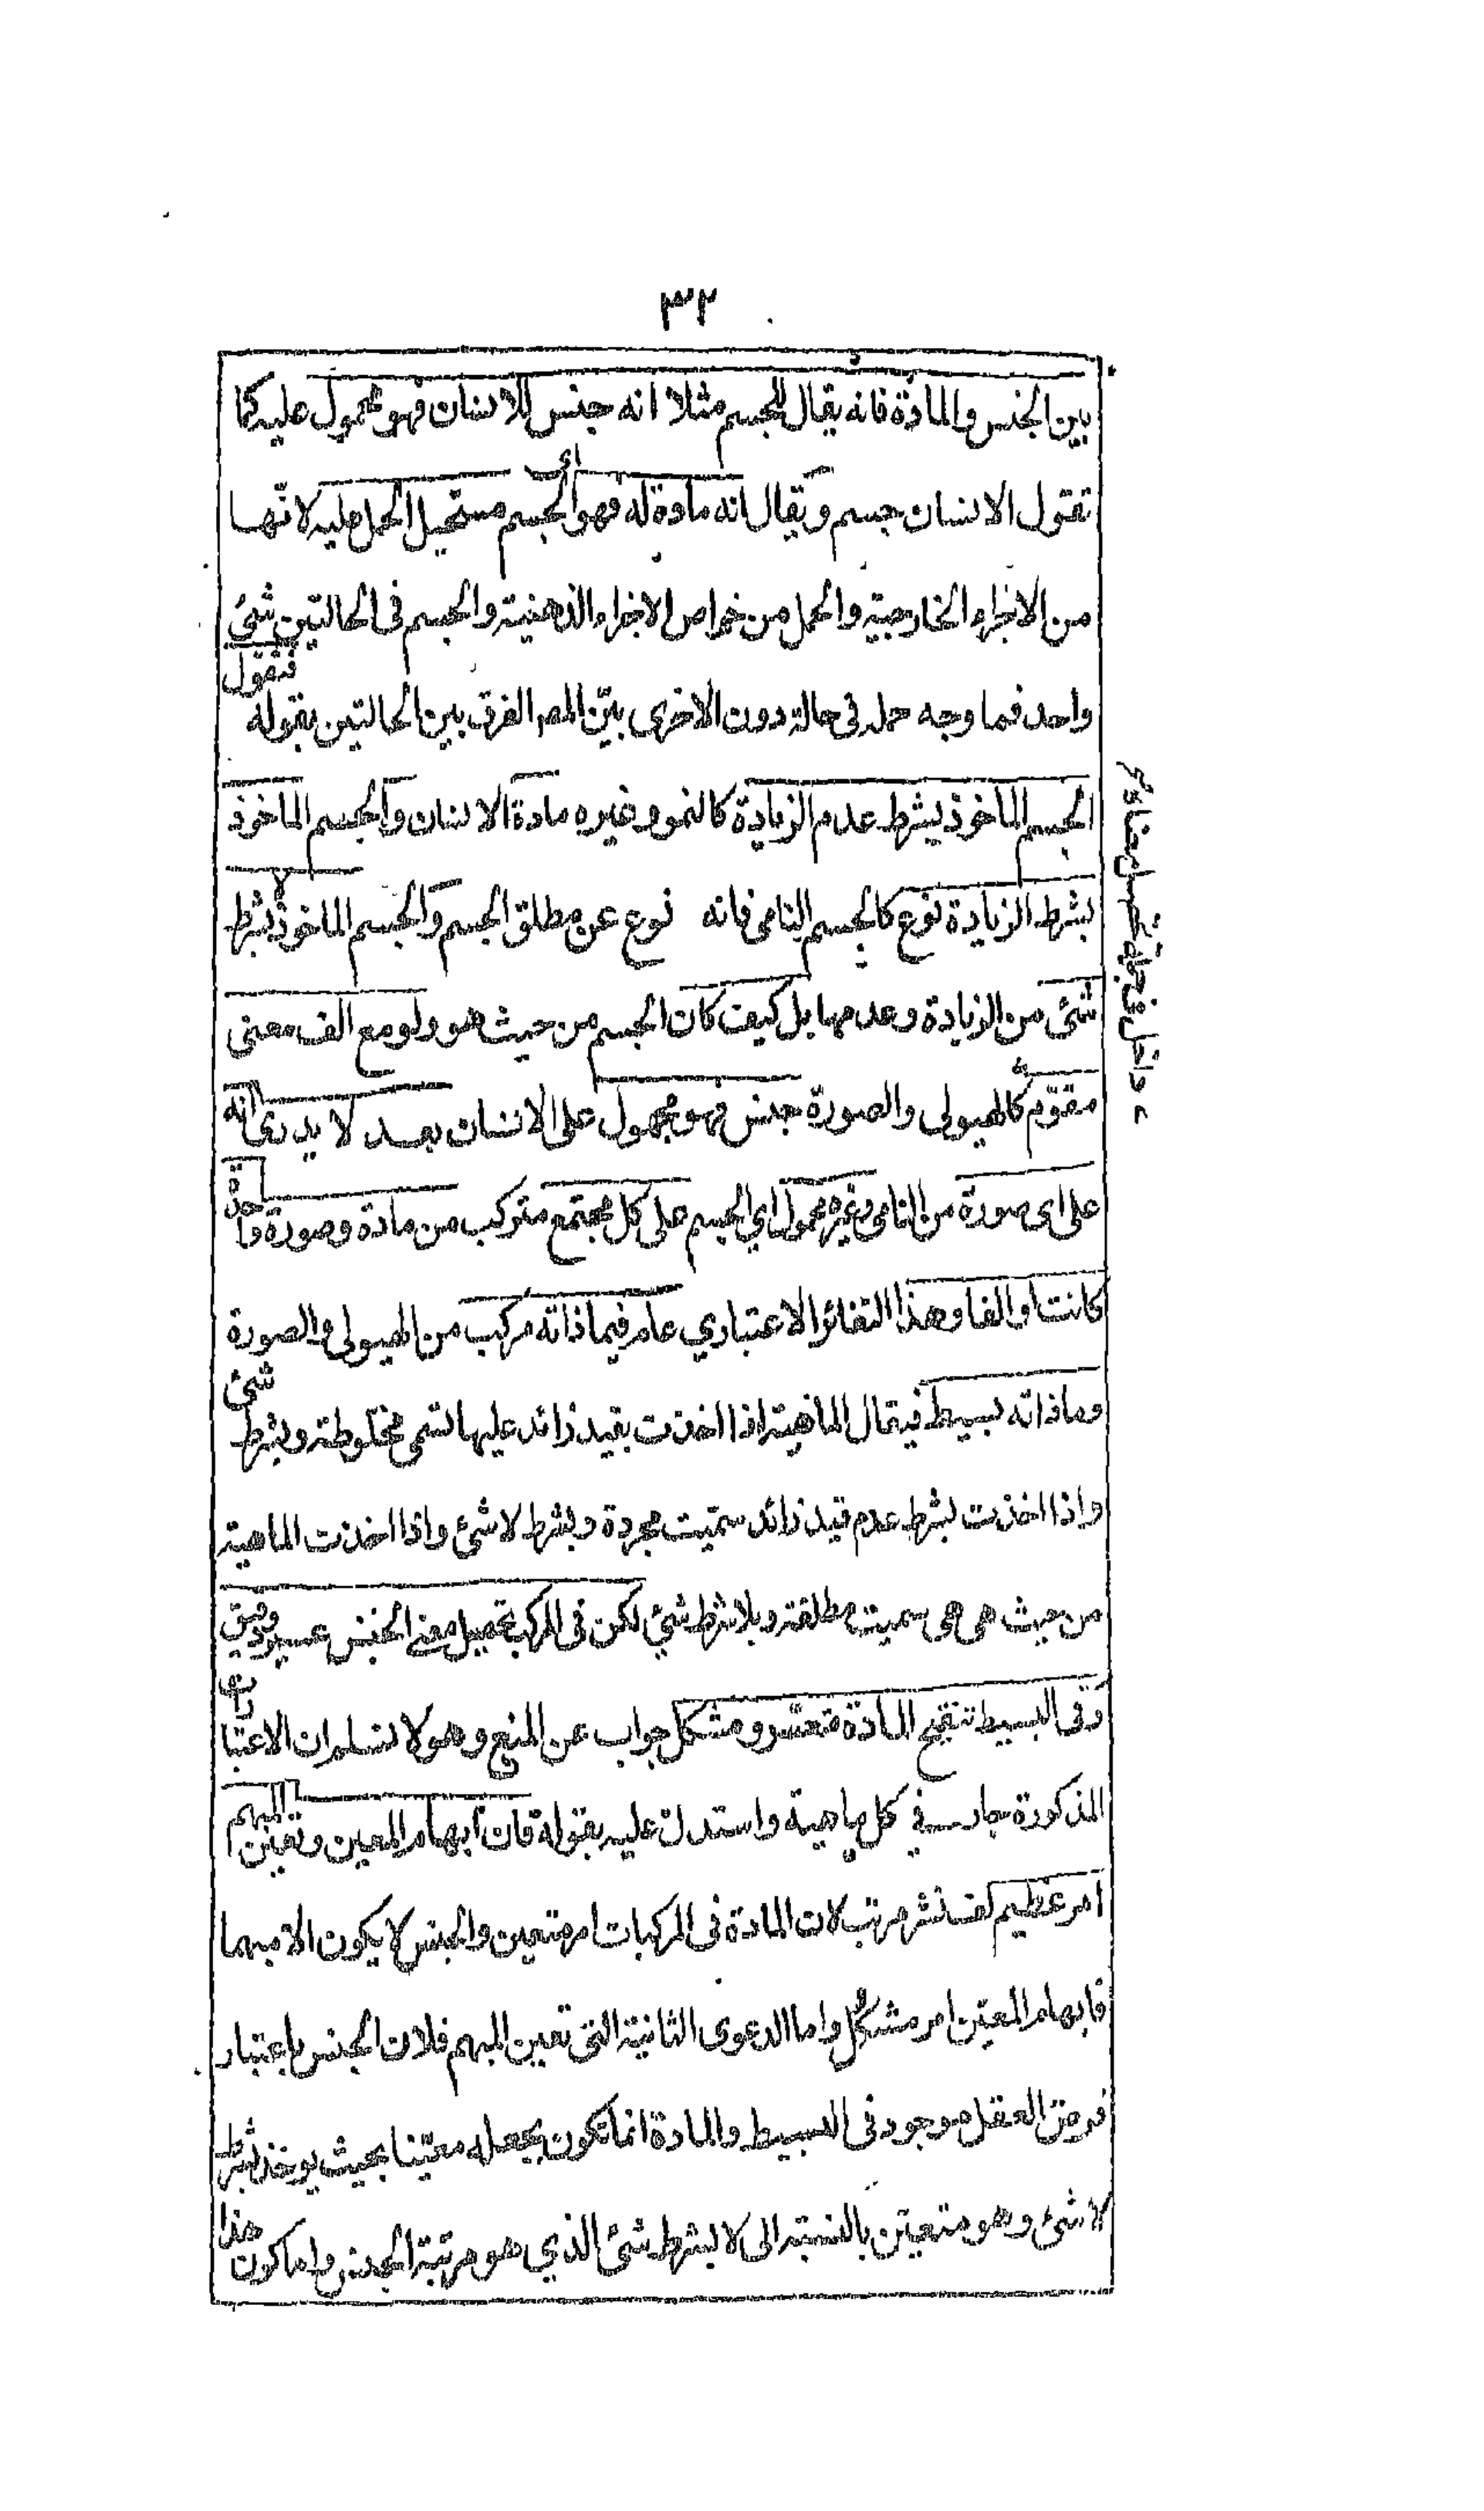 ٣٢
بين الجنس والمادة فانه يقال للجسم مثلا انه جنس للانسان فهو محمول عليه كما
تقول الانسان جسم ويقال انه مادة له فهو اى الجسم مستحيل الحمل عليه لانها
من الاجزاء الخارجية والحمل من خواص الاجزاء الذهنية والجسم فى الحالتين شئ
واحد فما وجه حمله فى حالة دون الاخرى بيّن المصر الفرق بين الحالتين بقوله فنقول
الجسم الماخوذ بشرط عدم الزيادة كالنمو وغيره مادة الانسان والجسم الماخوذ
بشرط الزيادة نوع كالجسم النامى فانه نوع عن مطلق الجسم والجسم الماخوذ لا بشرط
شئ من الزيادة وعدمها بل كيف كان الجسم من حيث هو ولو مع الف معنى
مقوّم كالهيولى والصورة جنس فهو مجهول على الانسان بعد لا يدرى انه
على اى صورة من النامى وغيره محمول اي الجسم على كل مجتمع متركب من مادة وصورة واحدة
كانت او الفا وهذا التغائر الاعتباري عام فيما ذاته مركب من الهيولى والصورة
وما ذاته بسيط فيقال الماهية اذا اخذت بقيد زائد عليها تسمى مخلوطة وبشرط شئ
واذا اخذت بشرط عدم قيد زائد سميت مجردة وبشرط لا شئ واذا اخذت الماهية
من حيث هى هى سميت مطلقة وبلا شرط شئ لكن فى المركب تحصيل معنے الجنس عسير ودقيق
وفى البسيط تنقيح المادة متعسر ومشكل جواب عن المنع وهو لا نسلم ان الاعتبارات
المذكورة جار في كل ماهية واستدل عليه بقوله فان ابهام المعين وتعين المبهم
امر عظيم لف نشر مرتب لان المادة فى المركبات امر متعين والجنس لا يكون الا مبهما
فابهام المعين امر مشكل واما الدعوى الثانية التى تعين المبهم فلان الجنس باعتبار
فرض العقل موجود فى البسيط والمادة انما تكون بجعله معيّنا بحيث يوخذ بشرط
لا شئ وهو متعين بالنسبة الى لا بشرط شئ الذي هو مرتبة الجنس واما كون هذا